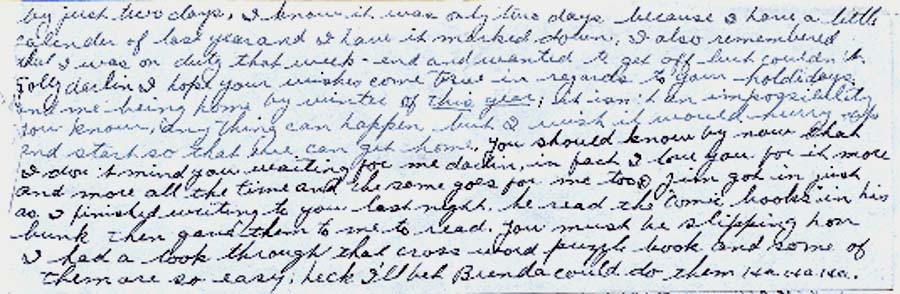 by just two days, I know it was only two days because I have a little
calender of last year and I have it marked down, I also remembered
that I was on duty that week-end and wanted to get off but couldn't.
Golly darlin I hope your wishes come true in regards to your holdidays
and me being home by winter of this year; it isn't an impossibility
you know, anything can happen, but I wish it would hurry up
and start so that we can get home. You should know by now that
I don't mind you waiting for me darlin, in fact I love you for it more
and more all the time and the same goes for me too. Jim got in just
as I finished writing to you last night, he read the "comic books" in his
bunk then gave them to me to read. You must be slipping hon
I had a look through that cross word puzzle book and some of
them are so easy, heck I'll bet Brenda could do them Ha Ha Ha.